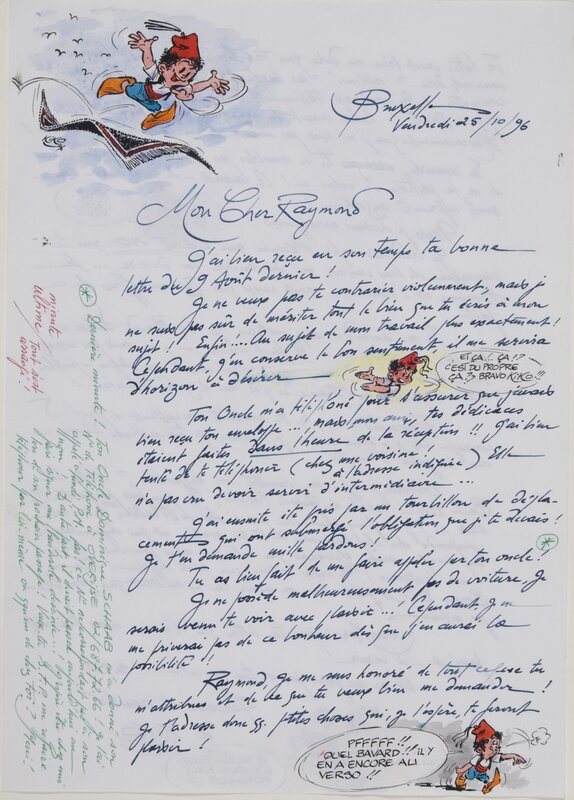 Bruxelles
Vendredi 25/10/96
Mon Cher Raymond
J'ai bien reçu en son temps ta bonne
lettre du 9 Août dernier !
Je ne veux pas te contrarier violemment, mais je
ne suis pas sûr de mériter tout le bien que tu écris à mon
sujet ! Enfin... Au sujet de mon travail plus exactement !
Cependant, j'en conserve le bon sentiment, il me servira
d'horizon à désirer
ET ÇA..!. ÇA !?
C'EST DU PROPRE
ÇA ?. BRAVO KIKO..!!
Ton Oncle m'a téléphoné pour s'assurer que j'avais
bien reçu ton enveloppe... mais, mon ami, tes dédicaces
étaient faites dans l'heure de la réception !! J'ai bien
tenté de te téléphoner (chez une voisine !
à l'adresse indiquée) Elle
n'a pas cru devoir servir d'intermédiaire...
J'ai ensuite été pris par un tourbillon de dépla-
cements qui ont submergé l'obligation que je te devais !
Je t'en demande mille pardons !
Tu as bien fait de me faire appeler par ton oncle.
Je ne possède malheureusement pas de voiture, je
serais venu te voir avec plaisir...! Cependant je ne
me priverai pas de ce bonheur dès que j'en aurai la
possibilité.
Raymond, je me sens honoré de tout ce que tu
m'attribues et de ce que tu veux bien me demander !
Je t'adresse donc qq. petites choses qui, je l'espère, te feront
plaisir !
PFFFFF !!
QUEL BAVARD !! IL Y
EN A ENCORE AU
VERSO !!
Dernière minute ! Ton Oncle Dominique SCHAAB m'a donné son
N° de téléphone à OVERIJSE 02/687.72.86
minute
ultime tout est